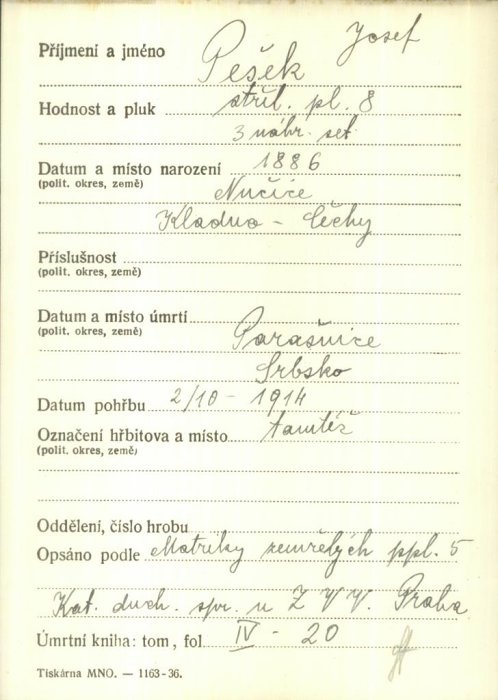 Příjmení a jméno Pešek Josef
Hodnost a pluk stříl. pl. 8
3 náhr. set.
Datum a místo narození 1886
(polit. okres, země) Nučice
Kladno - Čechy
Příslušnost
(polit. okres, země)
Datum a místo úmrtí
(polit. okres, země) Parašnice
Srbsko
Datum pohřbu 2/10 - 1914
Označení hřbitova a místo tamtéž
(polit. okres, země)
Oddělení, číslo hrobu
Opsáno podle Matriky zemřelých ppl. 5
Kat. duch. spr. u Z V V. Praha
Úmrtní kniha: tom, fol IV - 20
Tiskárna MNO. — 1163-36.